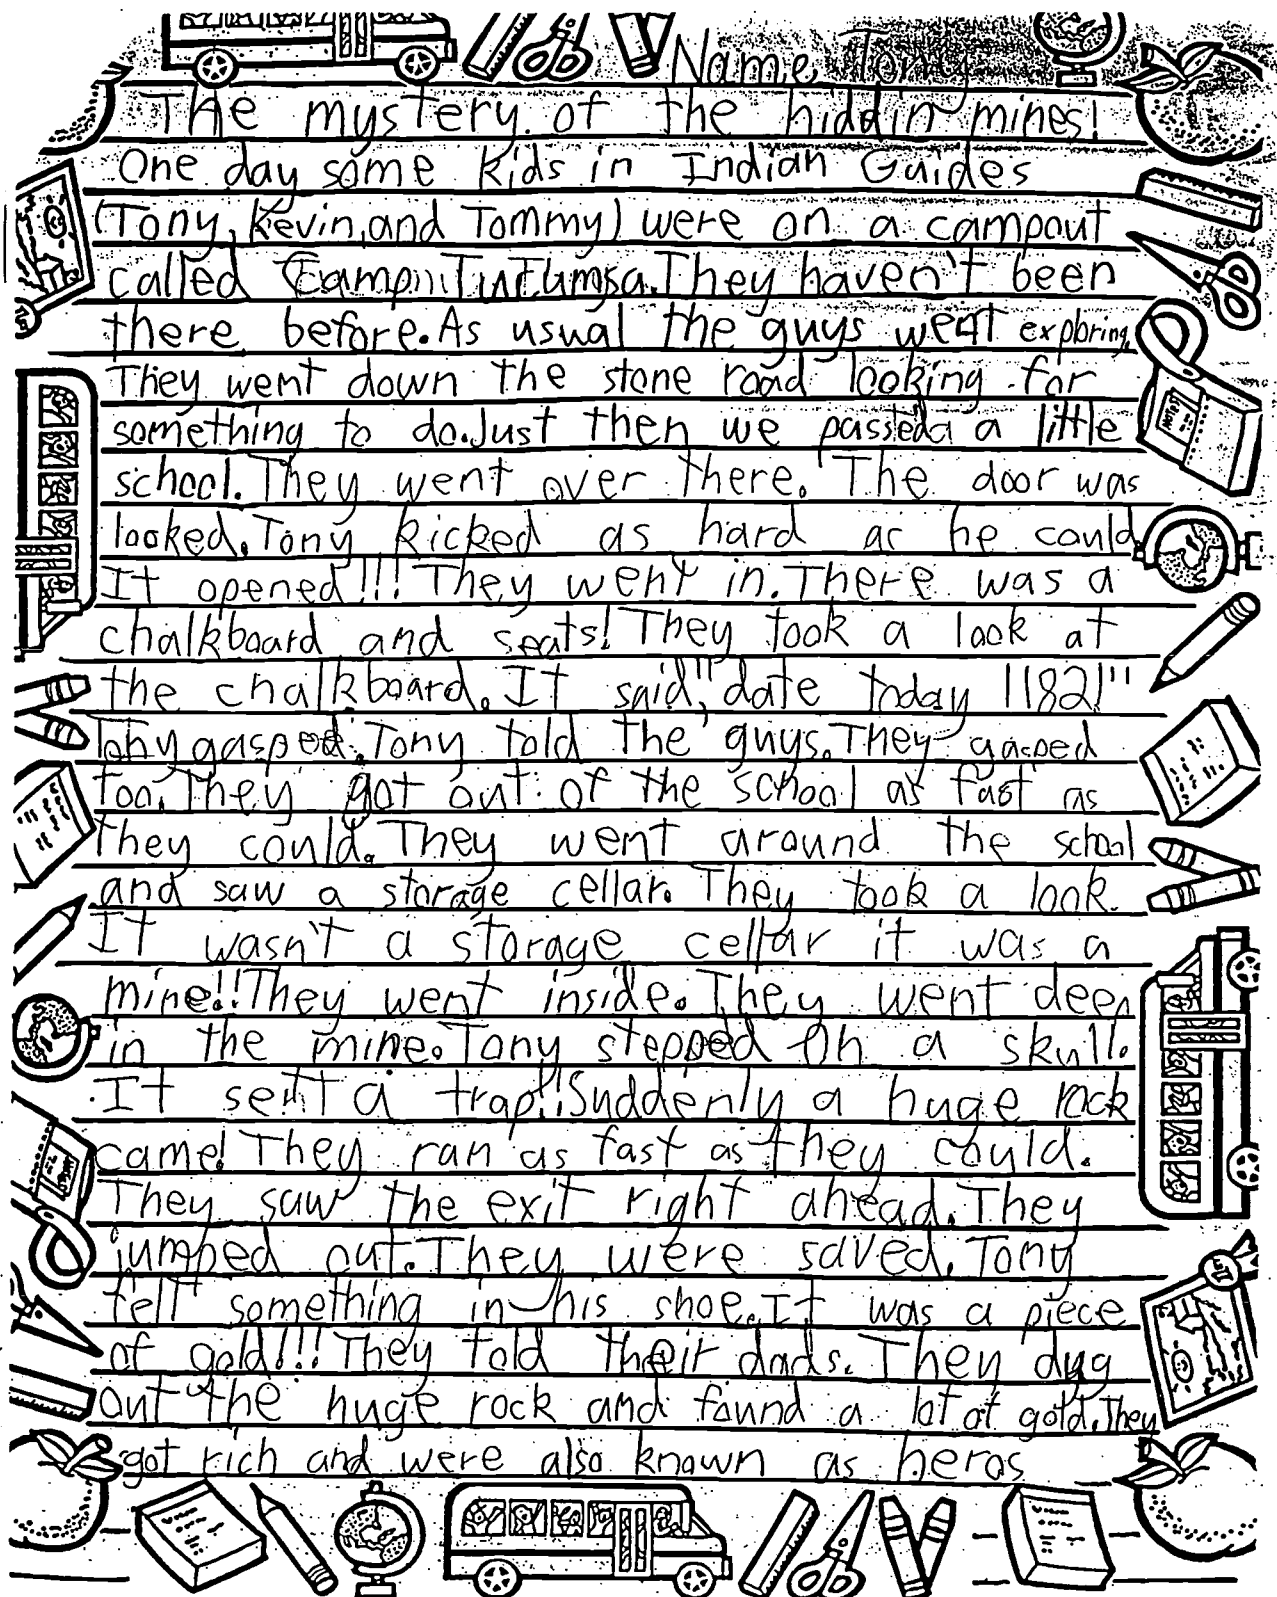 Name Tony
The mystery of the hiddin mines!
One day some kids in Indian Guides
(Tony, Kevin, and Tommy) were on a campout
called Camp They haven't been
there before. As usual the guys went exploring.
They went down the stone road looking for
something to do. Just then we passed a little
school. They went over there. The door was
looked. Tony kicked as hard as he could
It opened!!! They went in. There was a
chalkboard and seats! They took a look at
the chalkboard. It said, "date today 11821"
Tony gasped. Tony told the guys. They gasped
too. They got out of the school as fast as
they could. They went around the school
and saw a storage cellar. They took a look.
It wasn't a storage cellar it was a
mine!! They went inside. They went deep
in the mine. Tony stepped on a skull.
It sent a trap!! Suddenly a huge rock
came! They ran as fast as they could.
They saw the exit right ahead. They
jumped out. They were saved. Tony
felt something in his shoe. It was a piece
of gold!!! They told their dads. They dug
out the huge rock and found a lot of gold. They
got rich and were also known as heros